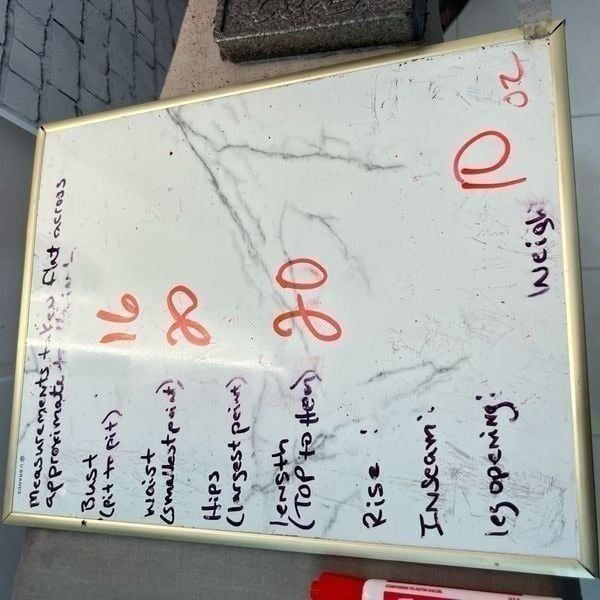 U BRANDS
Measurements taken flat across
approximate
Bust 16
(pit to pit)
Waist
(smallest point)
Hips
(largest point)
Length 20
(TOP to Hem)
Rise:
Inseam:
leg opening:
Weigh 10 oz
CONFORMS TO ASTM D4236